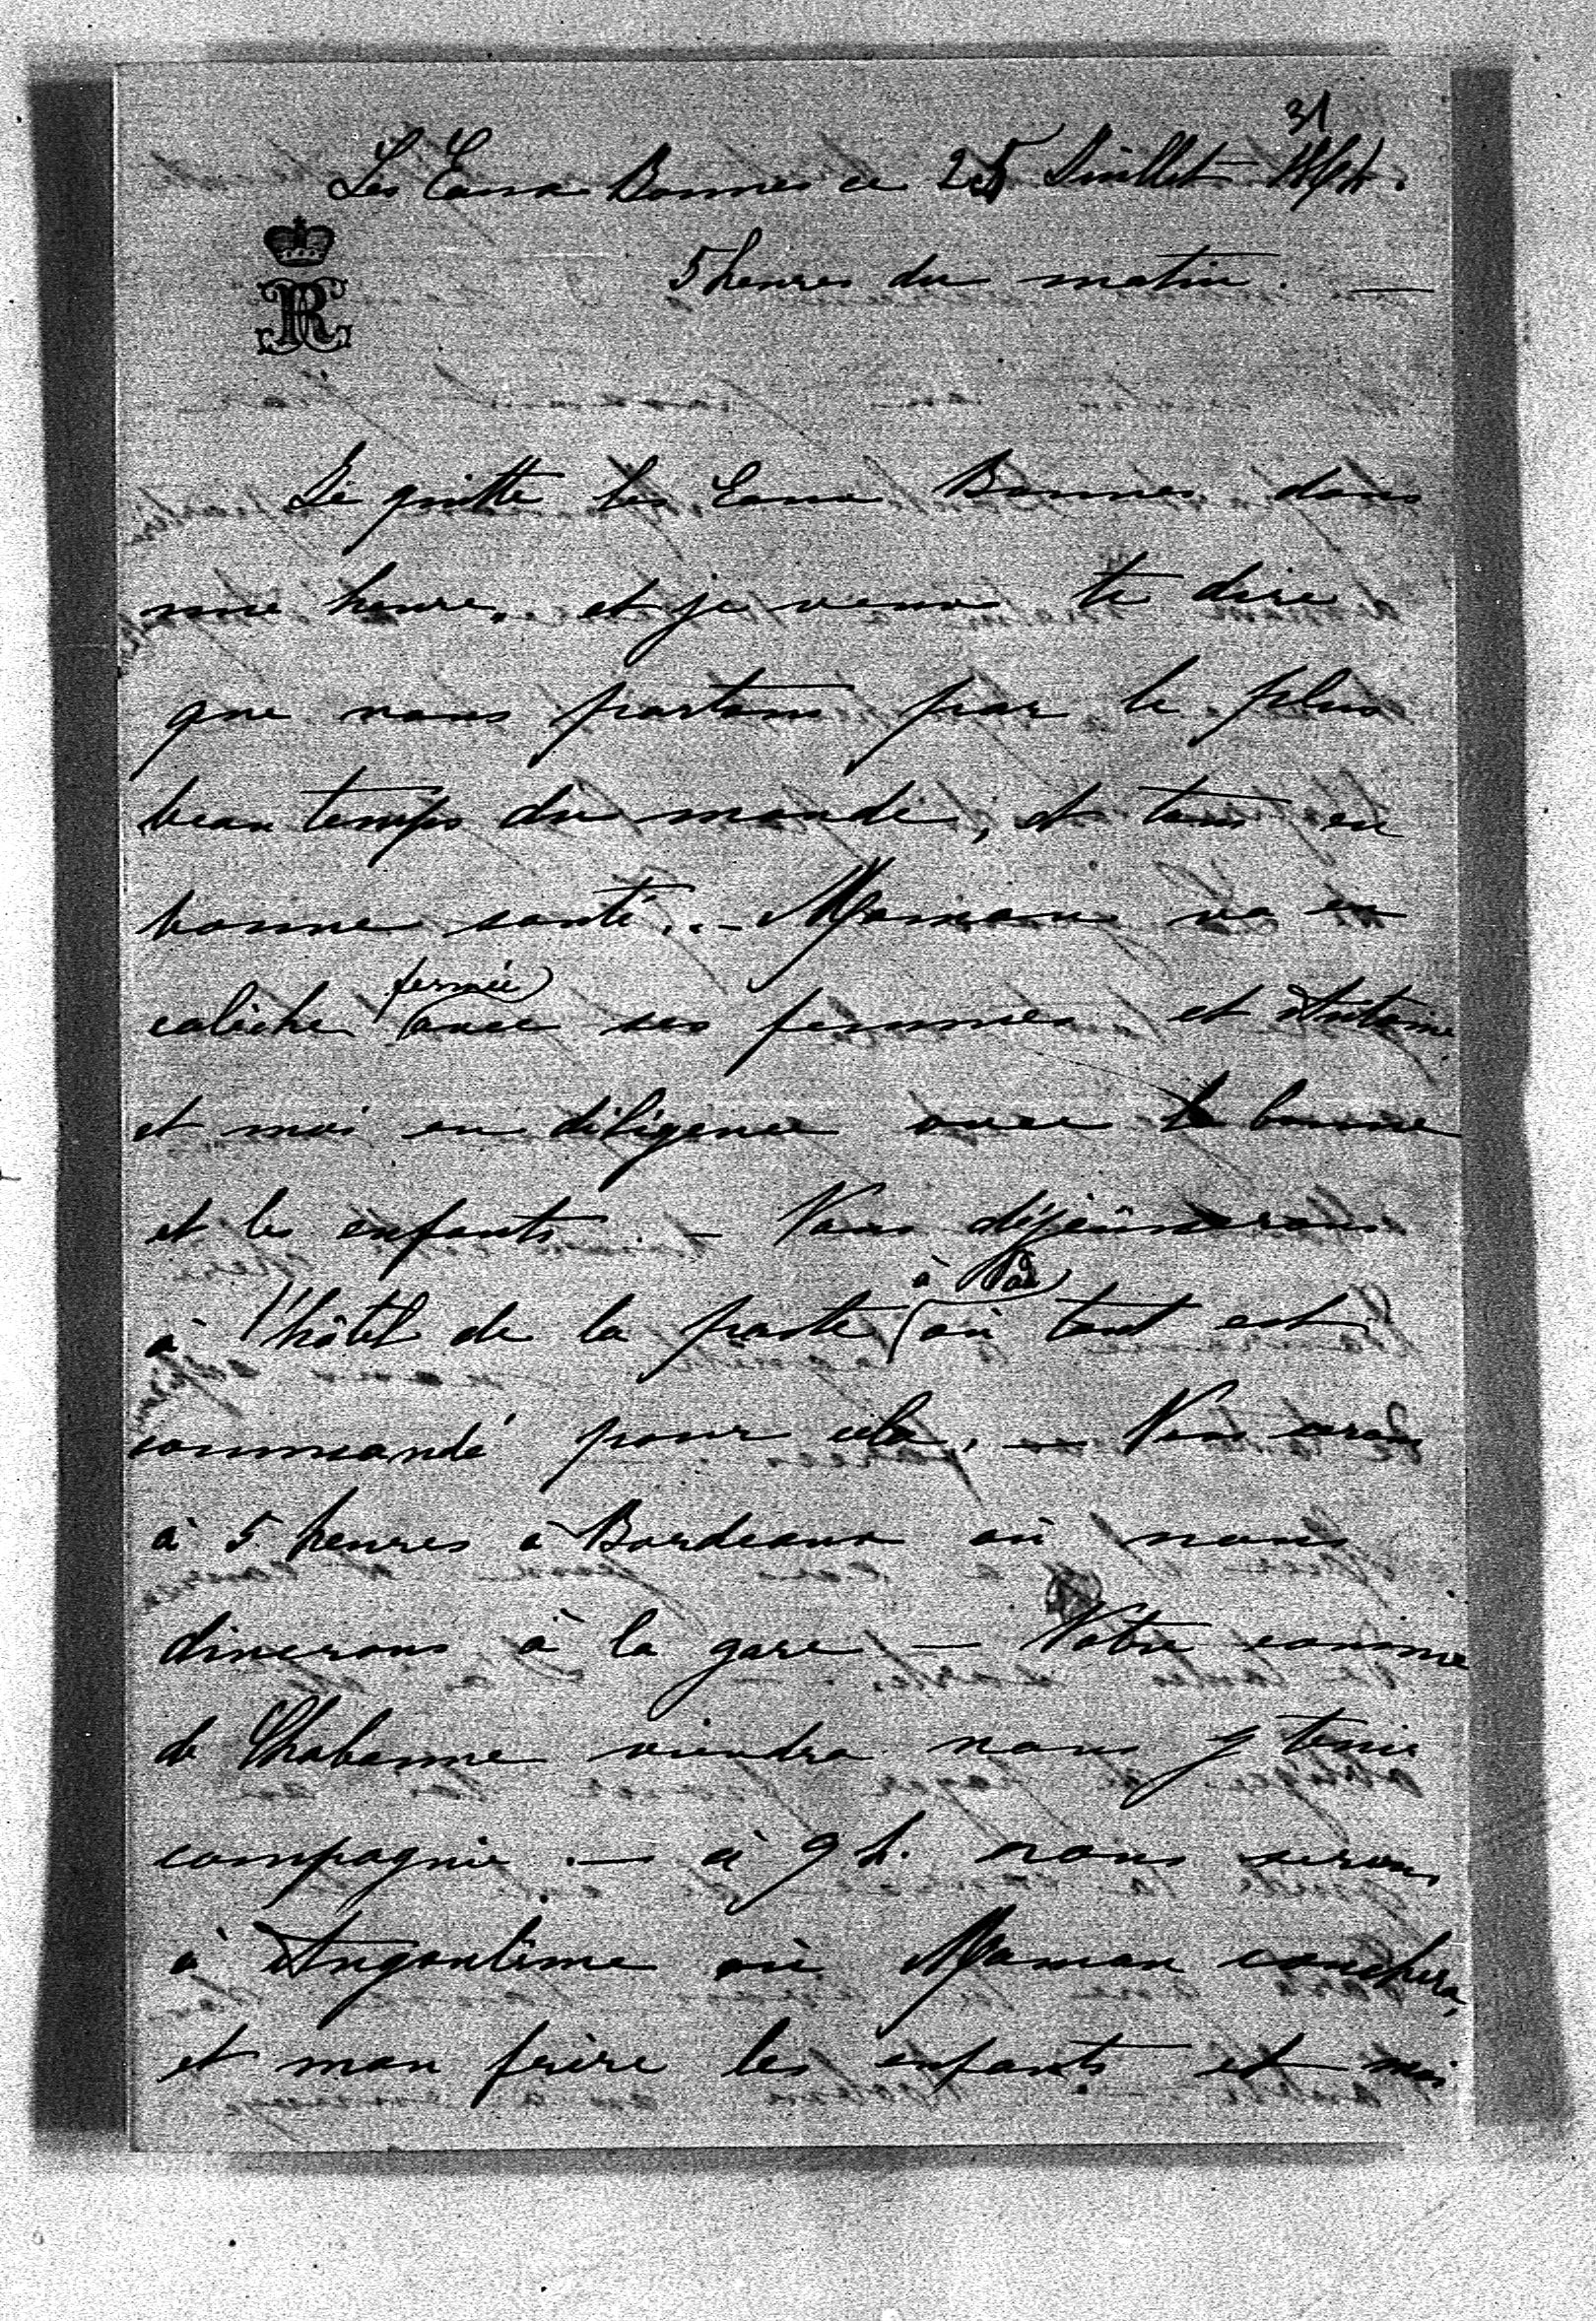 31
Les Eaux Bonnes ce 25 Juillet
5 heures du matin. —
Je quitte les Eaux Bonnes dans
une heure, et je viens te dire
que nous partons par le plus
beau temps du monde, et tous en
bonne santé. — Maman va en
calèche fermée avec ses femmes et Antoine
et moi en diligence avec la bonne
et les enfants — Nous déjeûnerons
à l'hôtel de la poste à Pau où tout est
commandé pour cela. — Nous serons
à 5 heures à Bordeaux où nous
dinerons à la gare — Notre
de Chabanne viendra nous y tenir
compagnie. — à 9 h. nous serons
à Angoulême où Maman couchera,
et mon frère les enfants et moi